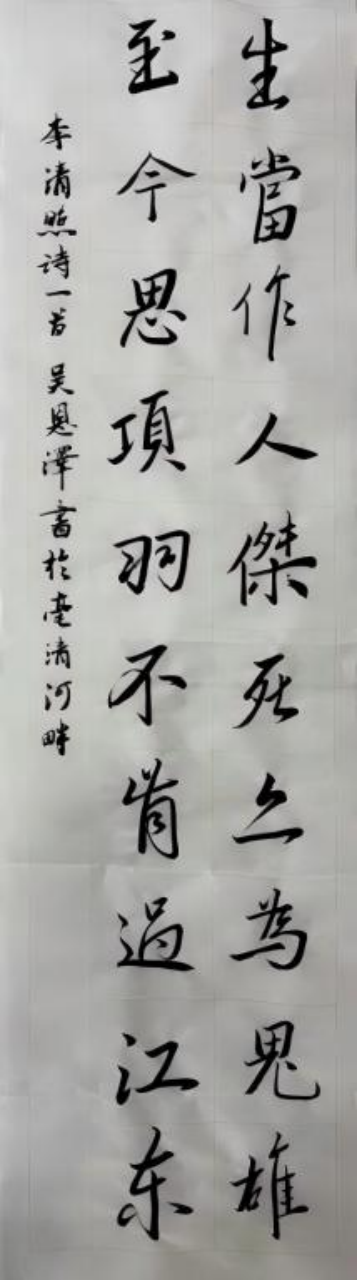 生當作人傑死亦為鬼雄
至今思項羽不肯過江东
李清照诗一首 吴恩澤書於亳清河畔